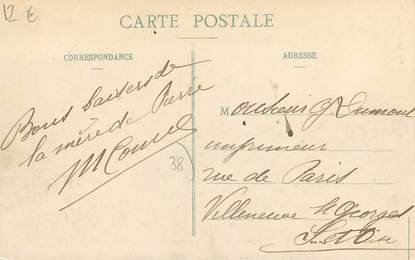 12 €
CARTE POSTALE
CORRESPONDANCE
ADRESSE
Bons baisers de
la mère de Pierre
38
Monsieur G. Dumont
imprimeur
rue de Paris
Villeneuve St Georges
S. et Oise